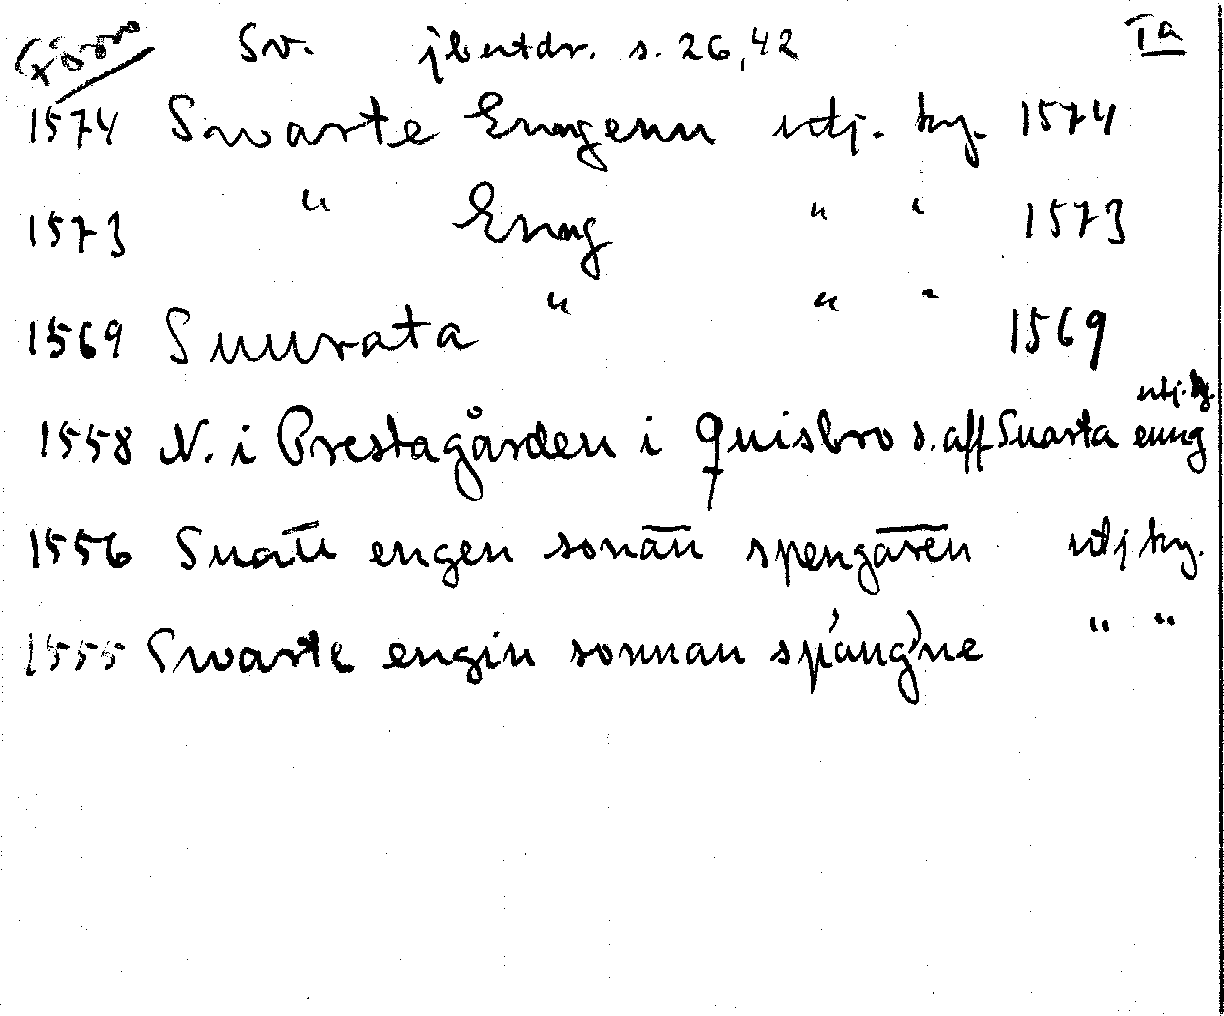 Sv. jbutdr. s. 26,42 Ia
1574 Swarte Enngenn utj. ky. 1574
1573 " Enng " " 1573
1569 Suurata " " " 1569
1558 N. i Prestagården i Quisbro s. aff Suarta enng utj. ky.
1556 Suatū engen sonāū spengāren utj ky.
1555 Swarte engin sonnan spáng'ne " "